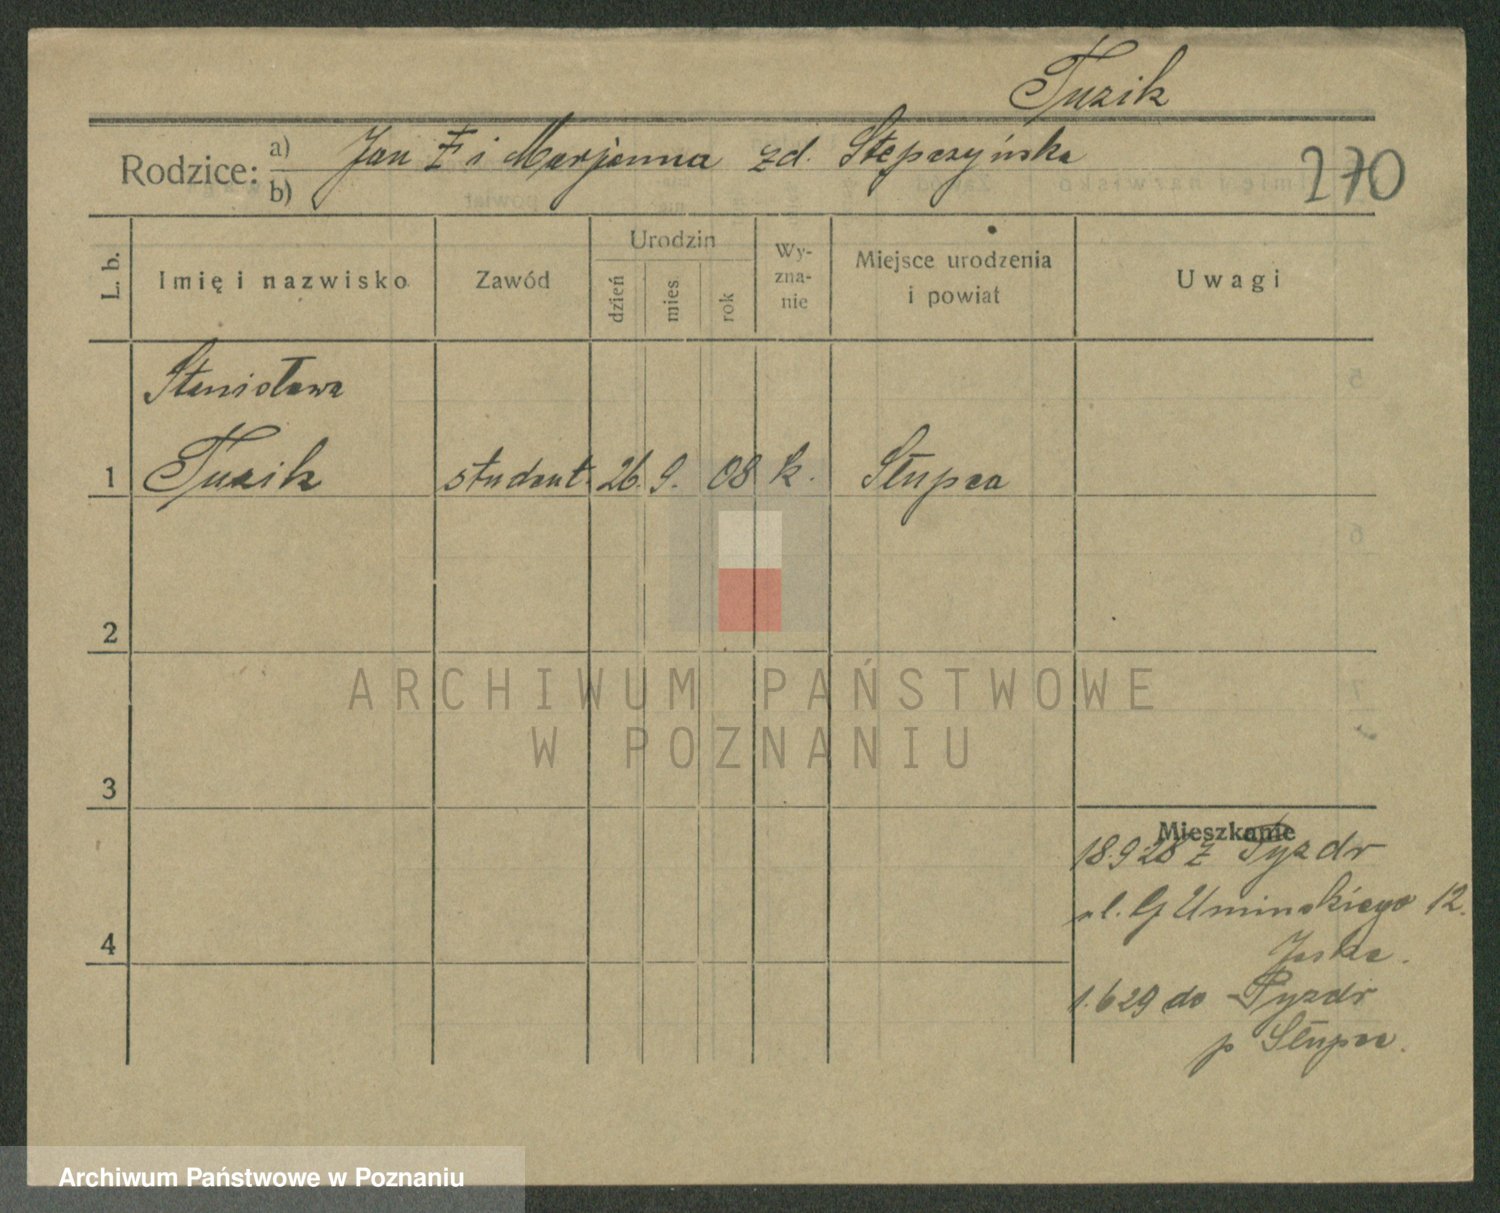 Tuzik
Rodzice: a) Jan Ŧ i Marjanna zd. Stępczyńska
b)
270
L. b.
Imię i nazwisko
Zawód
Urodzin
dzień
mies
rok
Wy-
zna-
nie
Miejsce urodzenia
i powiat
Uwagi
Stanisława
1 Tuzik student. 26. 9. 08 k. Słupca
2
3
4
Mieszkanie
18.9 28 z Pyzdr
ul. G Umińskiego 12.
1.6 29 do Pyzdr
p Słupca.
ARCHIWUM PAŃSTWOWE
W POZNANIU
Archiwum Państwowe w Poznaniu